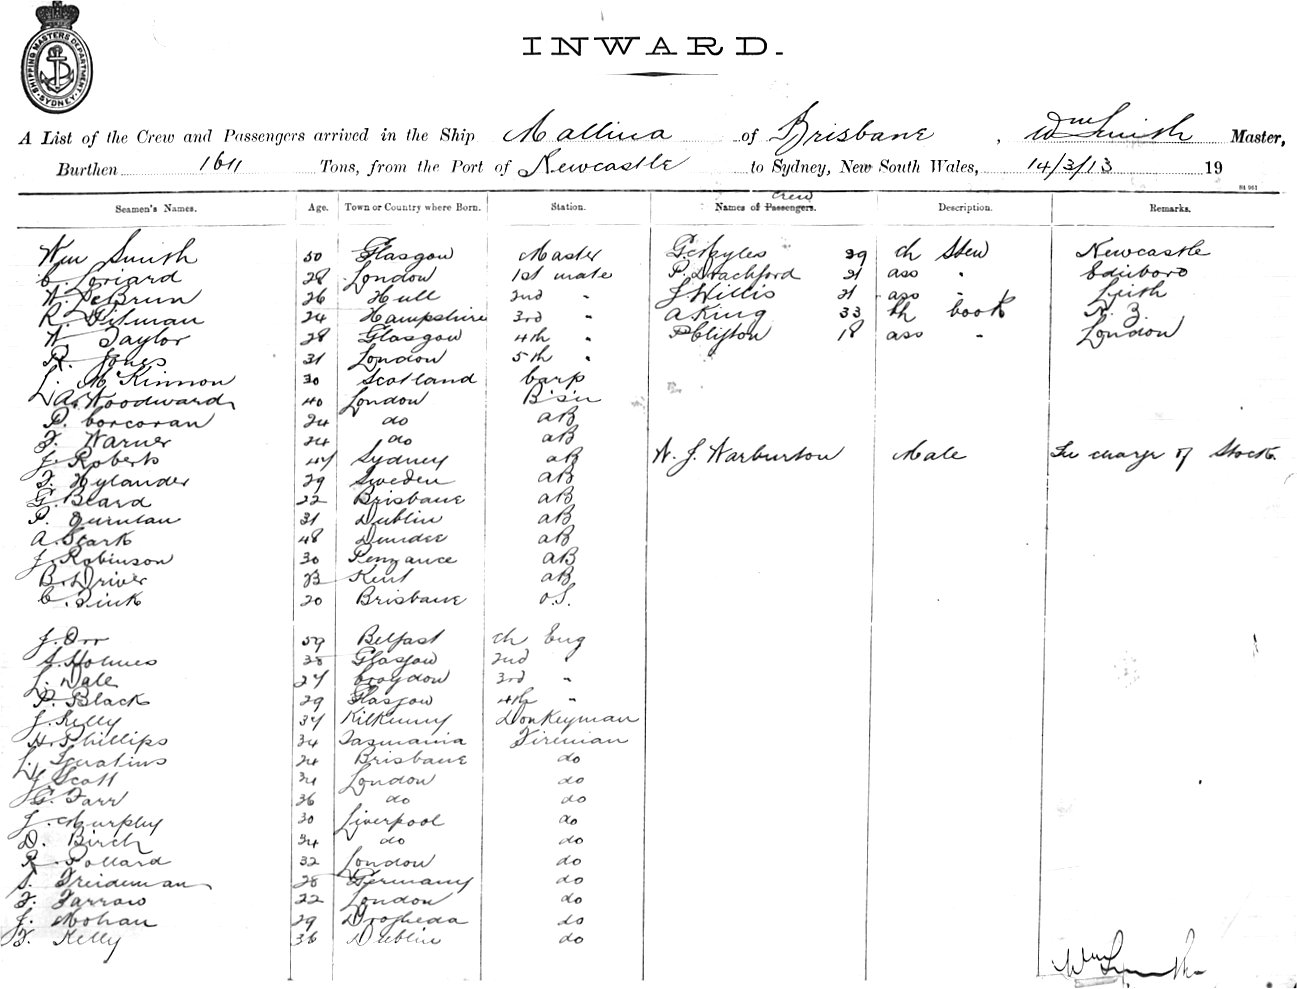 SHIPPING MASTERS DEPARTMENT
SYDNEY
INWARD.
A List of the Crew and Passengers arrived in the Ship Mallina of Brisbane, Wm Smith Master,
Burthen 1611 Tons, from the Port of Newcastle to Sydney, New South Wales, 14/3/13 19
Crew
Seamen's Names. Age. Town or Country where Born. Station. Names of Passengers. Description. Remarks.
Wm Smith 50 Glasgow Master G. Myles 39 Ch Stew Newcastle
C. Loriard 28 London 1st mate P. Drachford 21 ass " Edinboro
A. DeBrun 26 Hull 2nd " J Willis 21 ass " Leith
R. Gilman 24 Hampshire 3rd " A King 33 Ch Cook N.Z.
W. Taylor 28 Glasgow 4th " P Clifton 18 ass " London
R. Jones 31 London 5th "
L. McKinnon 30 Scotland Carp
A. Woodward 40 London B's'n
P. Corcoran 24 do AB
F. Warner 24 do AB
J. Roberts 47 Sydney AB W. J. Warburton Male In charge of Stock
F. Hylander 29 Sweden AB
G. Beard 22 Brisbane AB
P. Quinlan 31 Dublin AB
A. Stark 48 Dundee AB
J. Robinson 30 Penzance AB
B. Driver Kent AB
C. Sink 20 Brisbane O.S.
J. Orr 59 Belfast Ch Eng
A. Holmes 38 Glasgow 2nd "
L. Dale 27 Croydon 3rd "
P. Black 29 Glasgow 4th "
J. Kelly 37 Kilkenny Donkeyman
H. Phillips 34 Tasmania Fireman
L. Ignatius 24 Brisbane do
J. Scott 34 London do
G. Farr 36 do do
J. Murphy 30 Liverpool do
D. Birch 34 do do
R. Pollard 32 London do
S. Freideman 28 Germany do
F. Farrow 22 London do
J. Mohan 29 Drogheda do
F. Kelly 36 Dublin do
Wm Smith